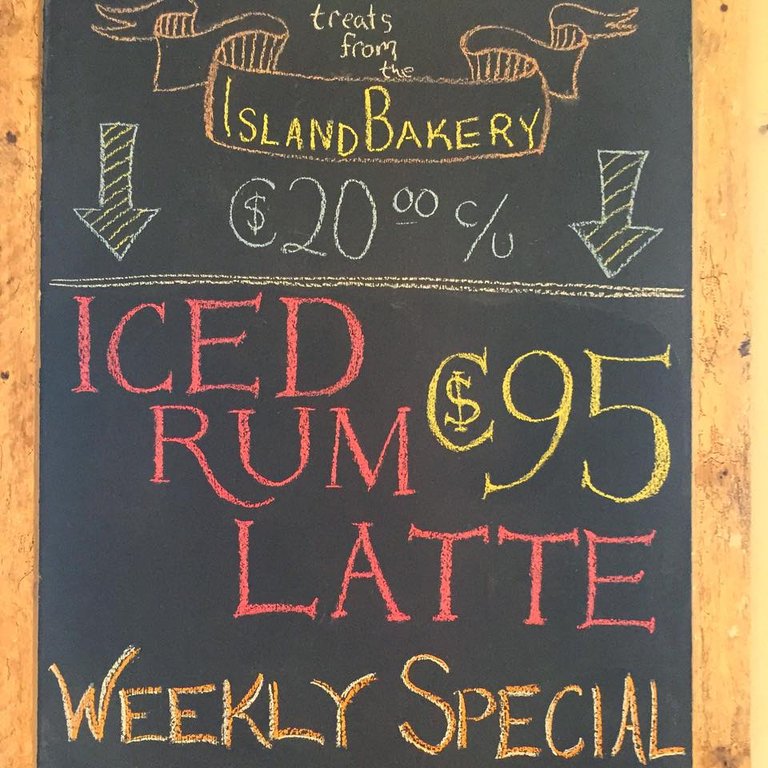 treats
from
the
ISLAND BAKERY
C$20.00 c/u
ICED
RUM C$95
LATTE
WEEKLY SPECIAL